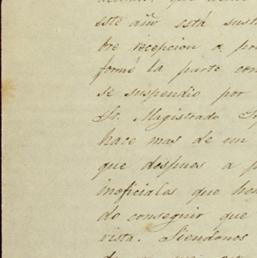 este año está sust
bre recepcion a pr
formé la parte con
se suspendio por
Sr. Magistrado
hace mas de un
que despues a p
inoficiales que he
do conseguir que
vista. Siendonos